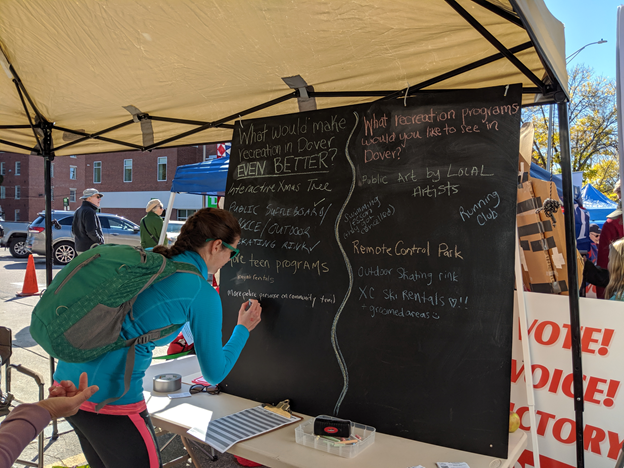 What would make
recreation in Dover
EVEN BETTER?
Interactive Xmas Tree
PUBLIC SHUFFLEBOARD
BOCCE/OUTDOOR
SKATING RINK
TEEN PROGRAMS
Kayak Rentals
More police presence on community trail
What recreation programs
would you like to see in
Dover?
Public Art by LOCAL
Artists
Swimming
Running
Club
Remote Control Park
Outdoor Skating rink
XC Ski Rentals ♡!!
+groomed areas
VOTE!
VOICE!